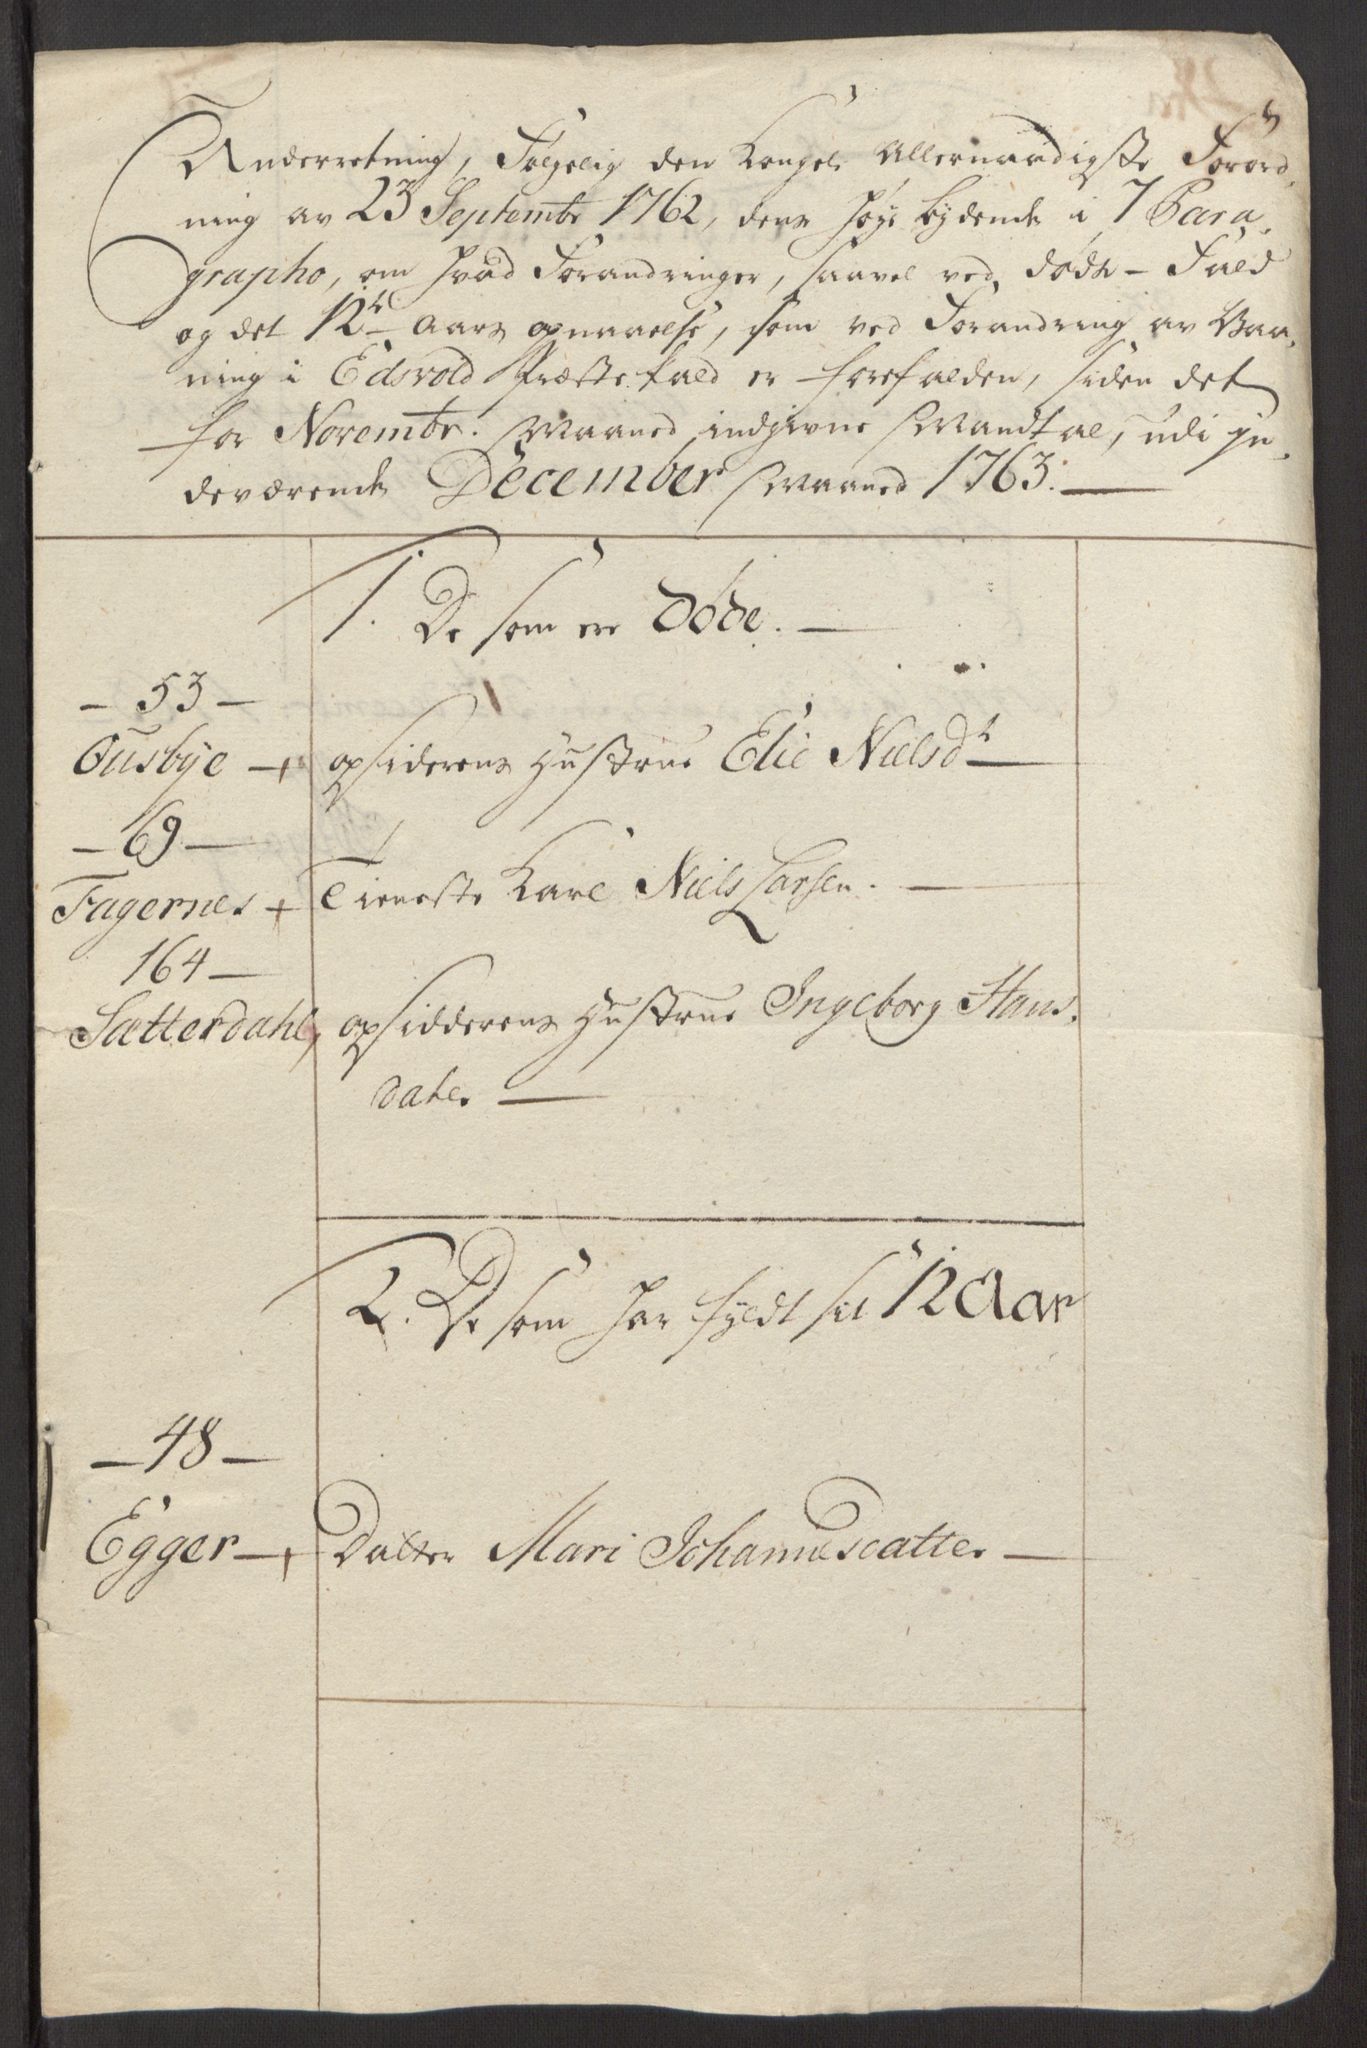 Underretning, Følgelig den Kongel: Allernaadigste Forord-
ning av 23 Septembr 1762, dens høye bydende i 7 Para-
grapho, om hvad Forandringer, saavel ved døds-Fald
og det 12te Aars opnaaelse, som ved Forandring av Vaa-
ning i Edsvold Præstekald er forefalden, siden det
for Novembr. Maaned indgivne Mandtal, udi in-
deværende December Maaned 1763.
1. De som ere døde.
- 53 -
Ousbye + opsiderens Hustrue Elie Nielsdt
- 69 -
Fagernes + Tieneste Karl Niels Larsen.
164 -
Sætterdahl, opsidderens Hustrue Ingeborg Hans-
dater
2. De som har fyldt sit 12 Aar
- 48 -
Egger + Datter Mari Johannesdatter